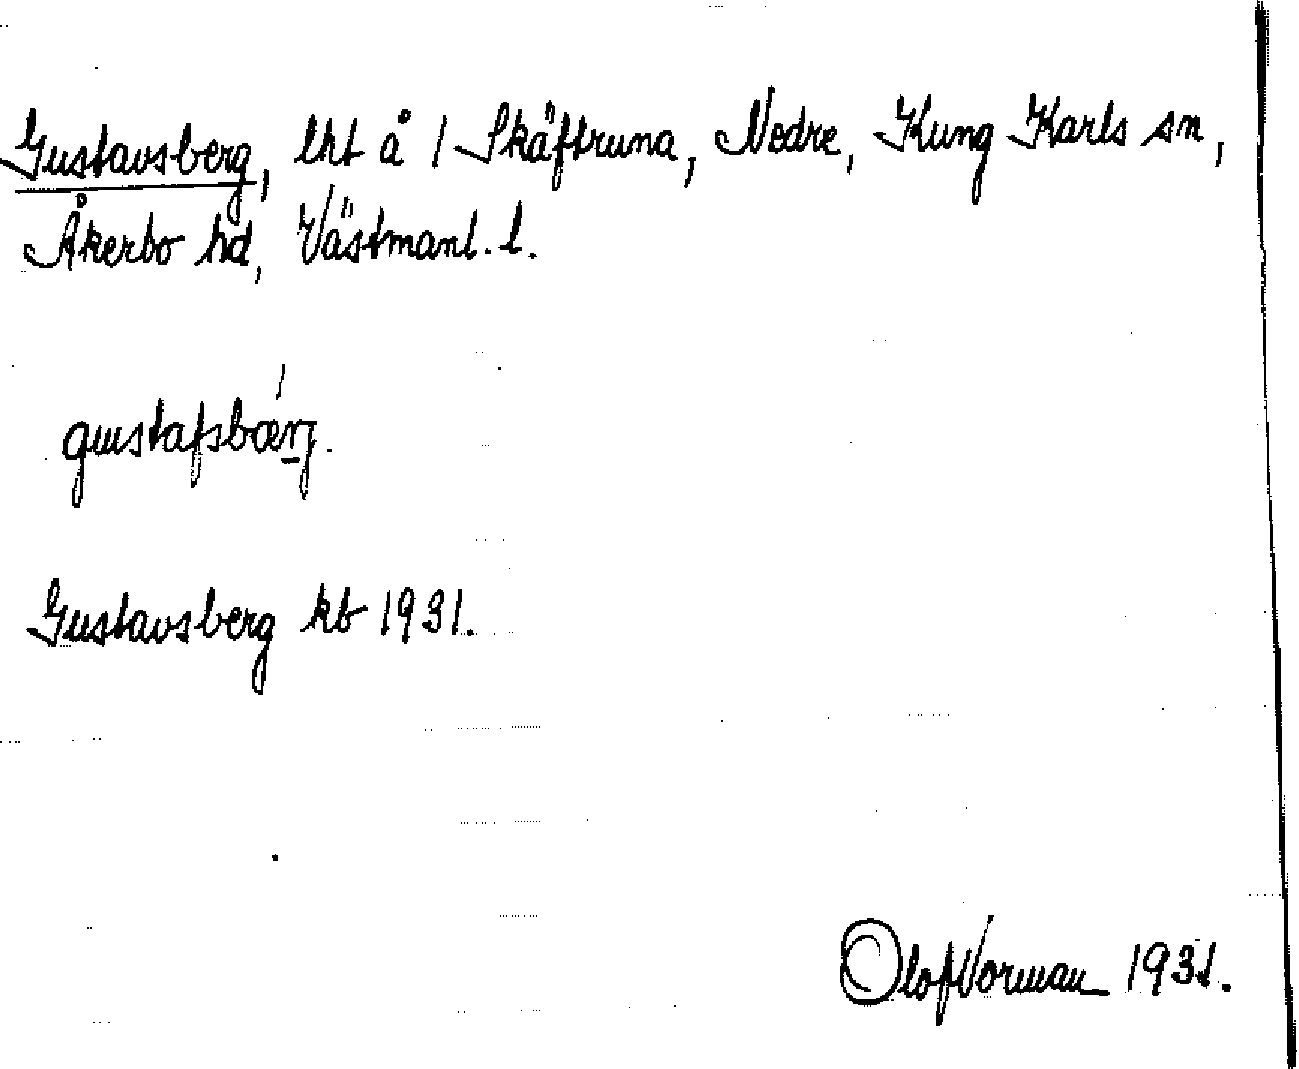 Gustavsberg, lht å 1 Skäftruna, Nedre, Kung Karls sn,
Åkerbo hd, Västmanl. l.
gustafsbærj.
Gustavsberg kb 1931.
Olof Norman 1931.